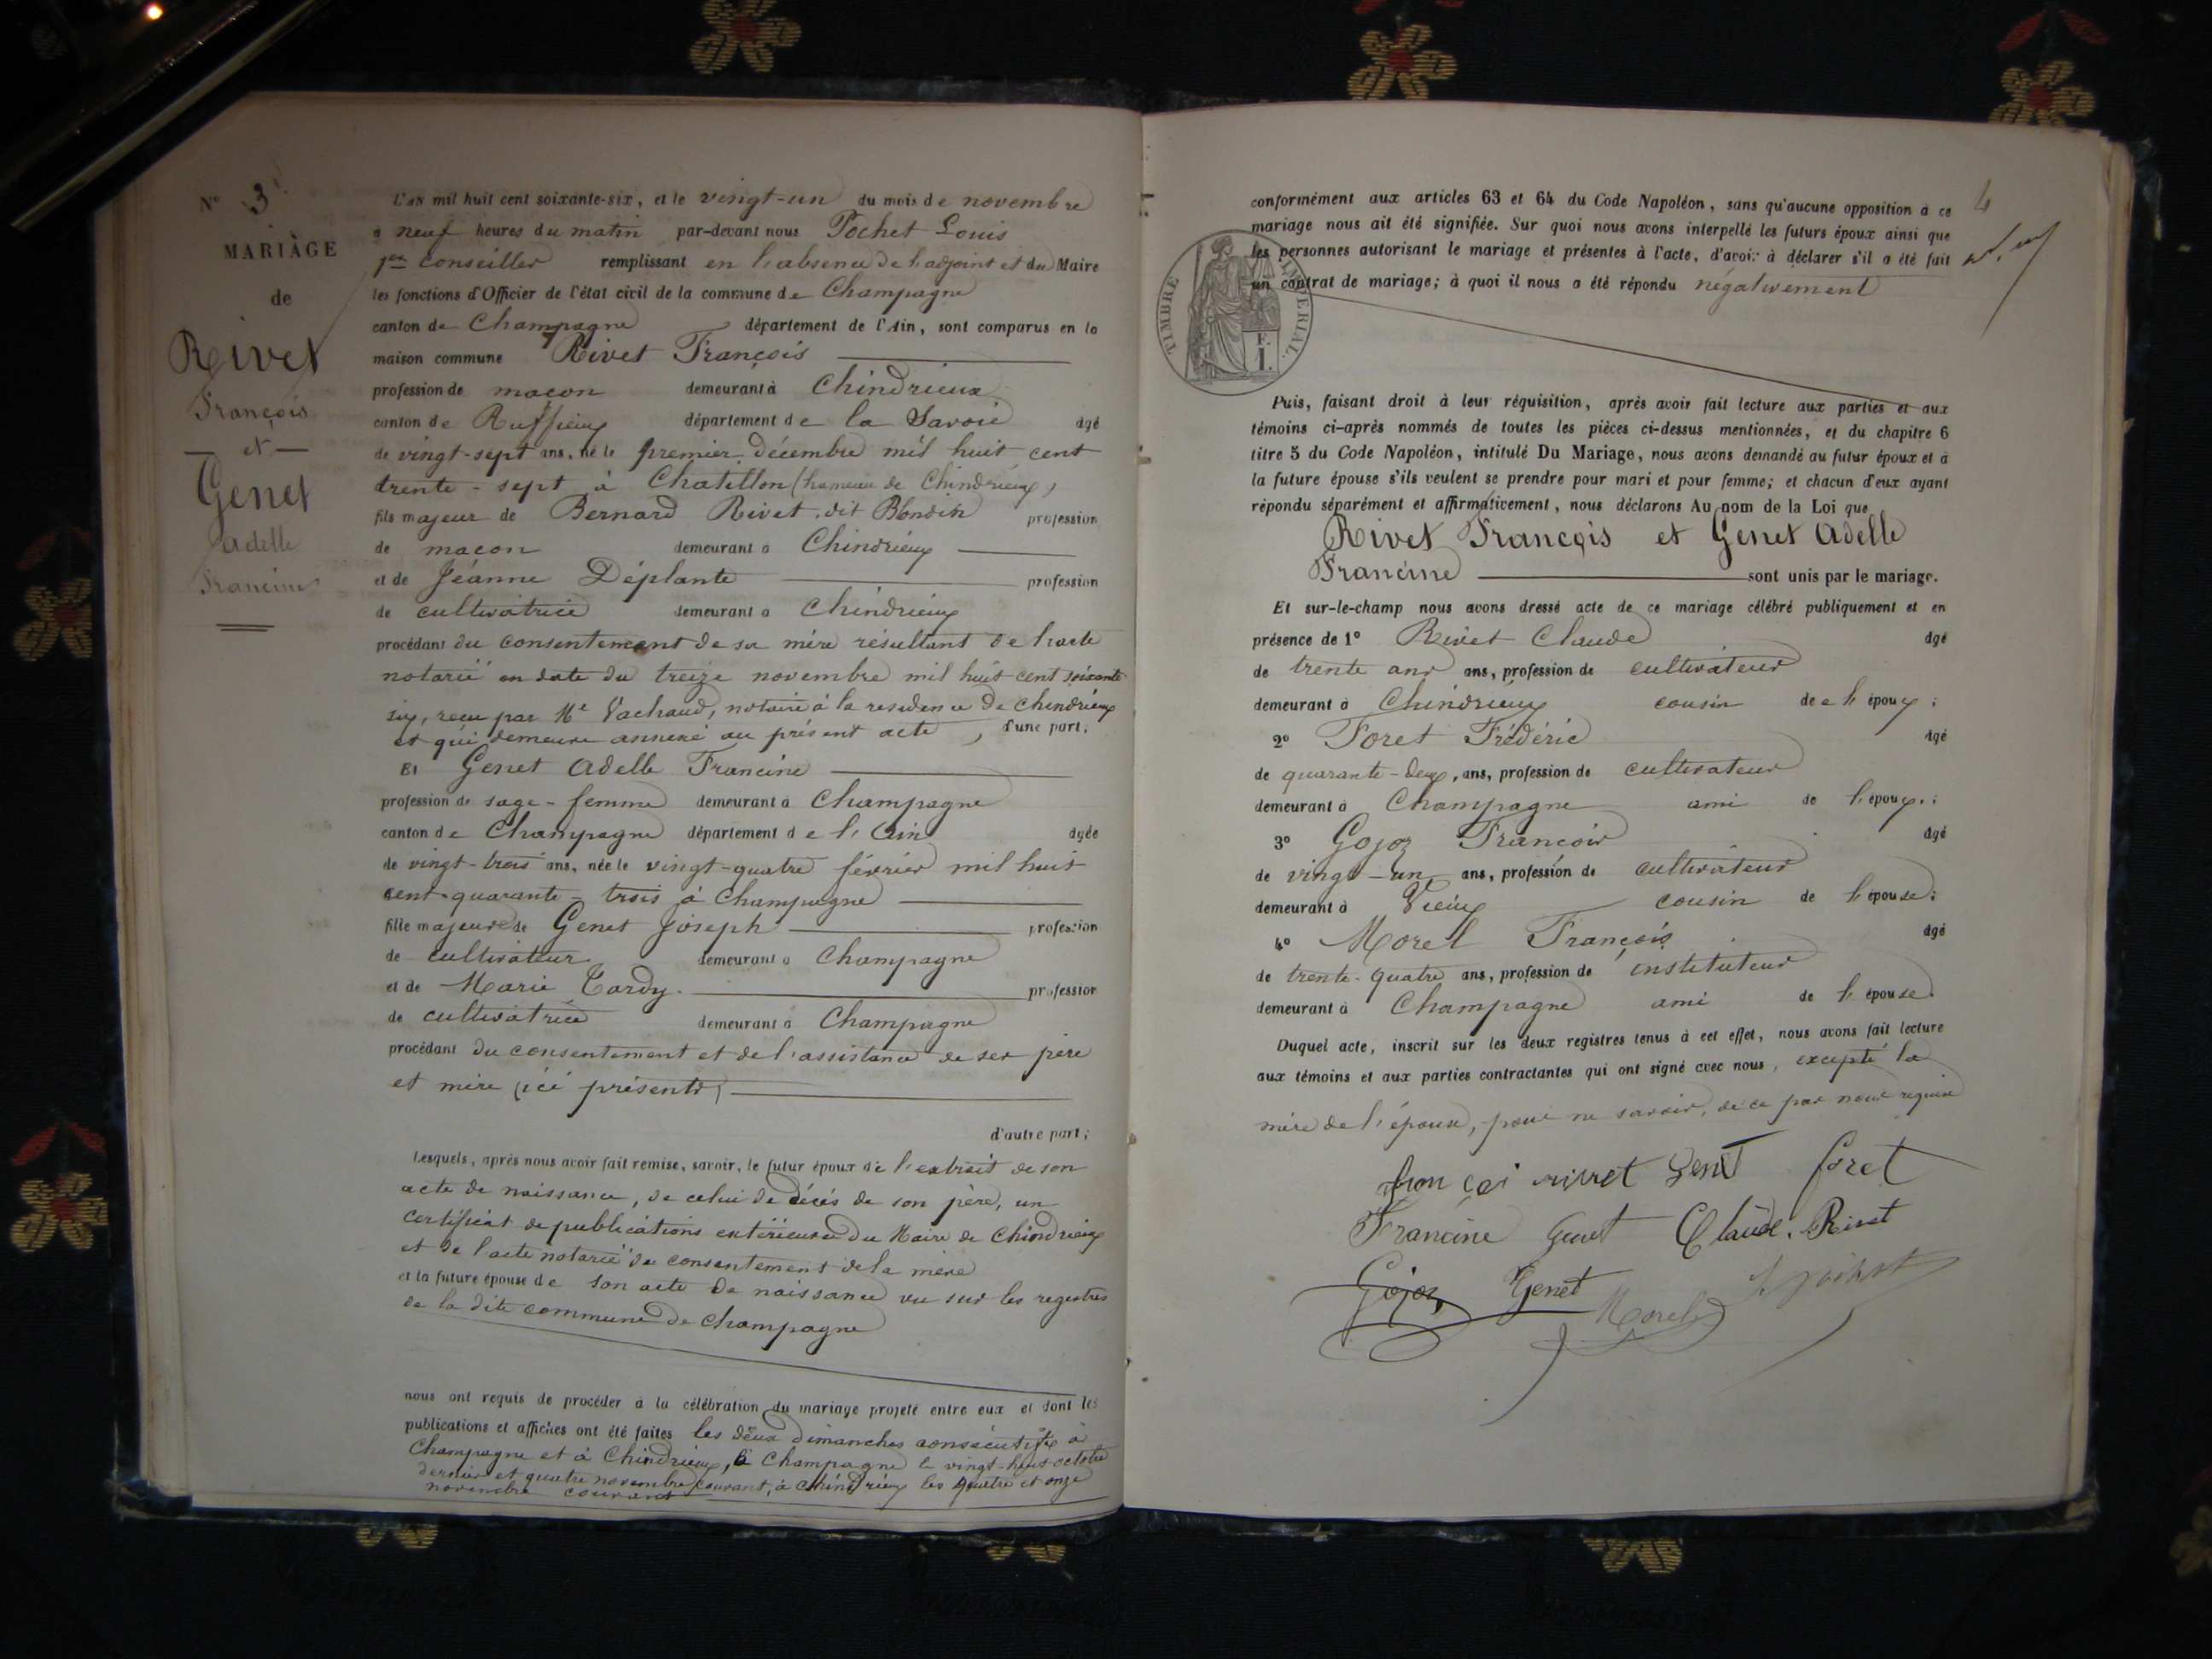 N° 3
MARIAGE
de
Rivet
François
et
Genet
Adelle
Francine
L'an mil huit cent soixante-six, et le vingt-un du mois de novembre
à neuf heures du matin par-devant nous Pochet Louis
1er conseiller remplissant en l'absence de l'adjoint et du Maire
les fonctions d'Officier de l'état civil de la commune de Champagne
canton de Champagne département de l'Ain, sont comparus en la
maison commune Rivet François
profession de maçon demeurant à Chindrieux
canton de Ruffieux département de la Savoie âgé
de vingt-sept ans, né le premier décembre mil huit cent
trente-sept à Chatillon (hameau de Chindrieux)
fils majeur de Bernard Rivet, dit Blondin profession
de maçon demeurant à Chindrieux
et de Jéanne Déplante profession
de cultivatrice demeurant à Chindrieux
procédant du consentement de sa mère résultant de l'acte
notarié en date du treize novembre mil huit cent soixante-
six, reçu par Me Vachaud, notaire à la residence de Chindrieux
et qui demeure annexé au présent acte, d'une part;
Et Genet Adelle Francine
profession de sage-femme demeurant à Champagne
canton de Champagne département de l'Ain âgée
de vingt-trois ans, née le vingt-quatre février mil huit
cent quarante-trois à Champagne
fille majeure de Genet Joseph profession
de cultivateur demeurant à Champagne
et de Marie Tardy profession
de cultivatrice demeurant à Champagne
procédant du consentement et de l'assistance de ses père
et mère ici présents
d'autre part;
Lesquels, après nous avoir fait remise, savoir, le futur époux de l'extrait de son
acte de naissance, de celui de décès de son père, un
certificat de publications extérieures du Maire de Chindrieux
et de l'acte notarié du consentement de la mère
et la future épouse de son acte de naissance vu sur les registres
de la dite commune de Champagne
nous ont requis de procéder à la célébration du mariage projeté entre eux et dont les
publications et affiches ont été faites les deux dimanches consécutifs à
Champagne et à Chindrieux, à Champagne le vingt-huit octobre
dernier et quatre novembre courant, à Chindrieux les quatre et onze
novembre courant
4
conformément aux articles 63 et 64 du Code Napoléon, sans qu'aucune opposition à ce
mariage nous ait été signifiée. Sur quoi nous avons interpellé les futurs époux ainsi que
les personnes autorisant le mariage et présentes à l'acte, d'avoir à déclarer s'il a été fait
un contrat de mariage; à quoi il nous a été répondu négativement
TIMBRE IMPERIAL
F.
1.
Puis, faisant droit à leur réquisition, après avoir fait lecture aux parties et aux
témoins ci-après nommés de toutes les pièces ci-dessus mentionnées, et du chapitre 6
titre 5 du Code Napoléon, intitulé Du Mariage, nous avons demandé au futur époux et à
la future épouse s'ils veulent se prendre pour mari et pour femme; et chacun d'eux ayant
répondu séparément et affirmativement, nous déclarons Au nom de la Loi que
Rivet François et Genet Adelle
Francine sont unis par le mariage.
Et sur-le-champ nous avons dressé acte de ce mariage célébré publiquement et en
présence de 1° Rivet Claude âgé
de trente ans ans, profession de cultivateur
demeurant à Chindrieux cousin de l'époux;
2° Foret Frédéric âgé
de quarante-deux, ans, profession de cultivateur
demeurant à Champagne ami de l'époux;
3° Gojoz François âgé
de vingt-un ans, profession de cultivateur
demeurant à Vieux cousin de l'épouse;
4° Morel François âgé
de trente-quatre ans, profession de instituteur
demeurant à Champagne ami de l'épouse.
Duquel acte, inscrit sur les deux registres tenus à cet effet, nous avons fait lecture
aux témoins et aux parties contractantes qui ont signé avec nous, excepté la
mère de l'épouse, pour ne savoir, de ce par nous requise
rivret Genet foret
Francine Genet Claude Rivet
Gojoz Genet
Morel